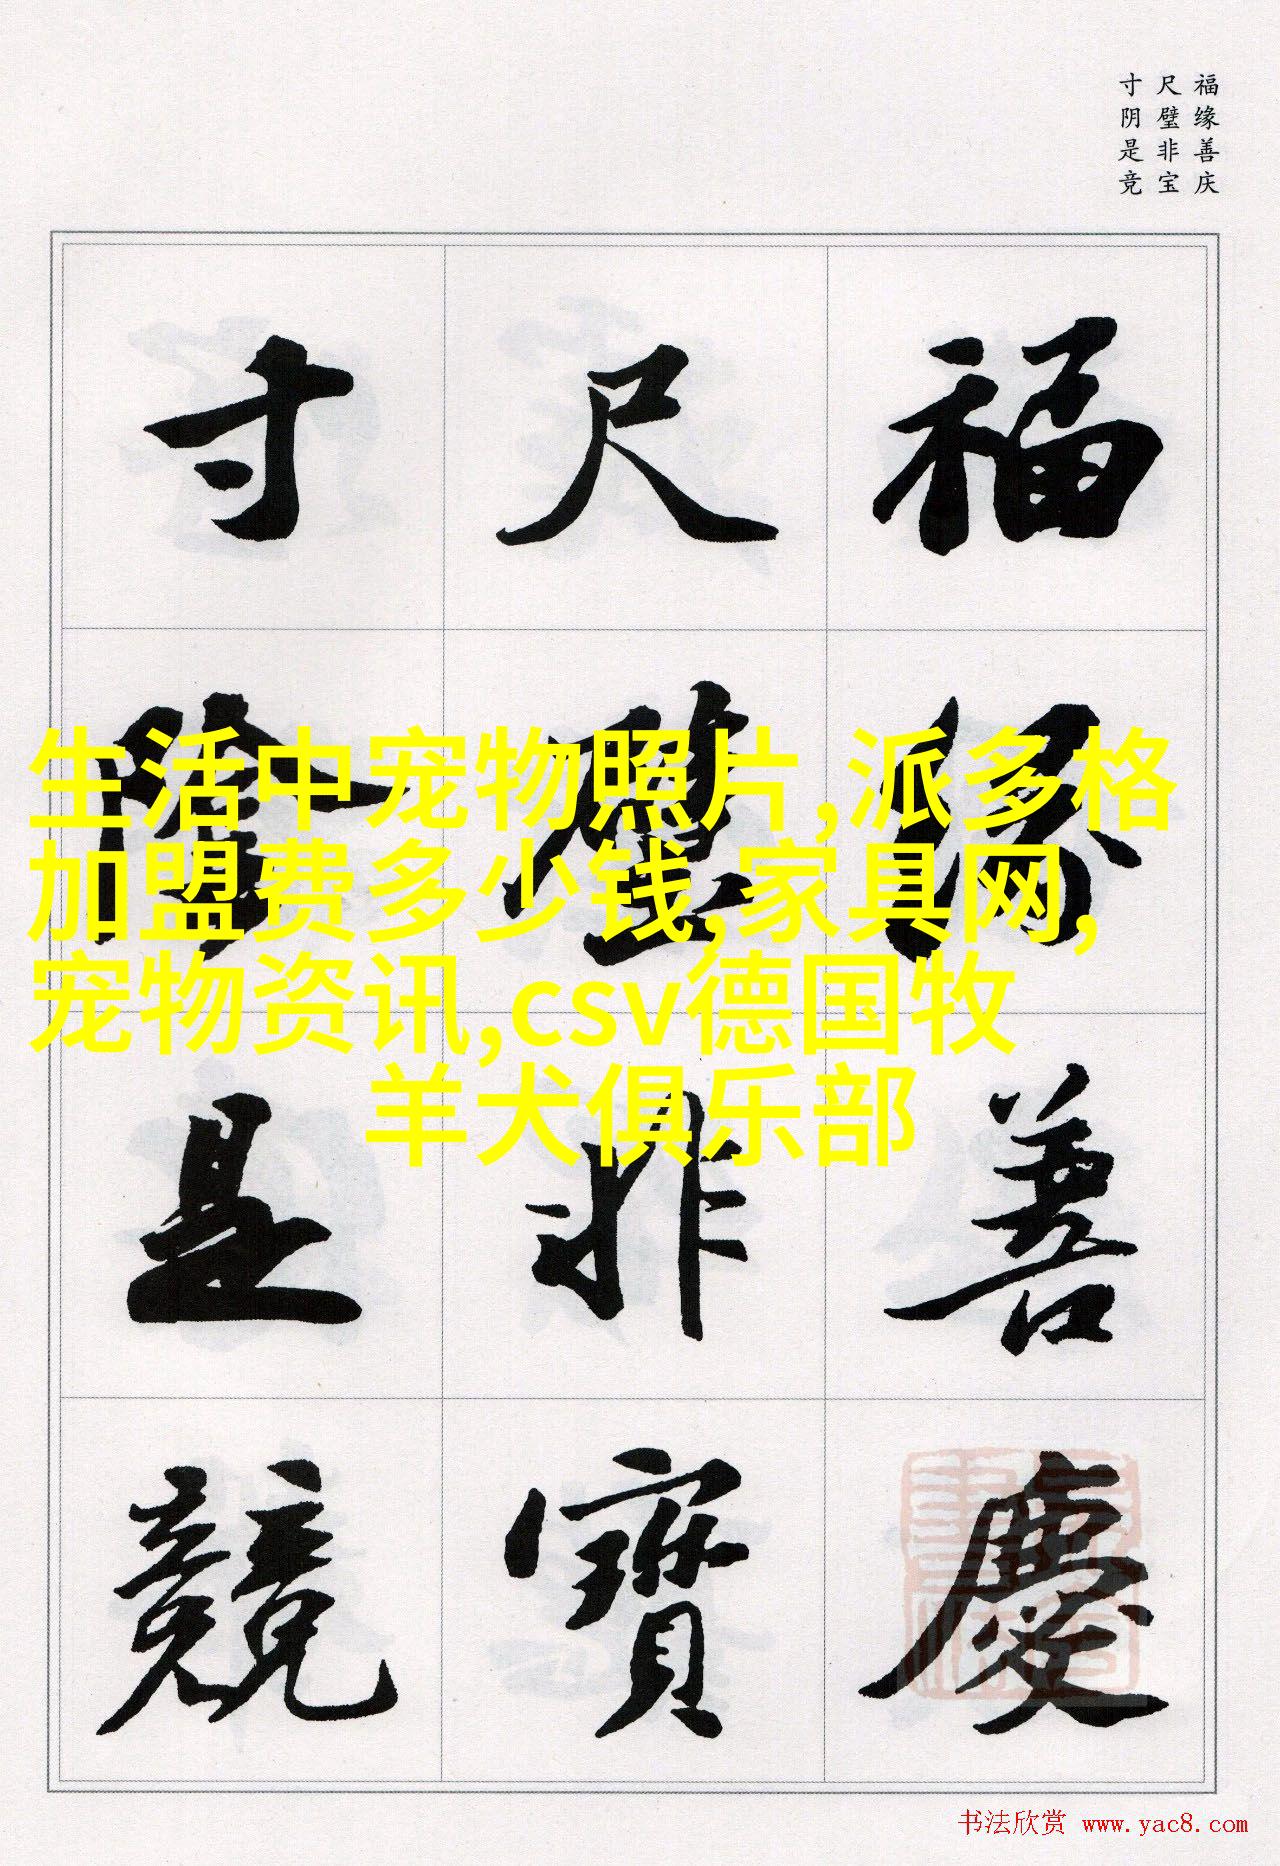 福缘善庆
尺璧非宝
寸阴是竞
福緣善慶
尺璧非寶
寸陰是競
生活中宠物照片,派多格
加盟费多少钱,家具网,
宠物资讯,csv德国牧
羊犬俱乐部
书法欣赏 www.yac8.com